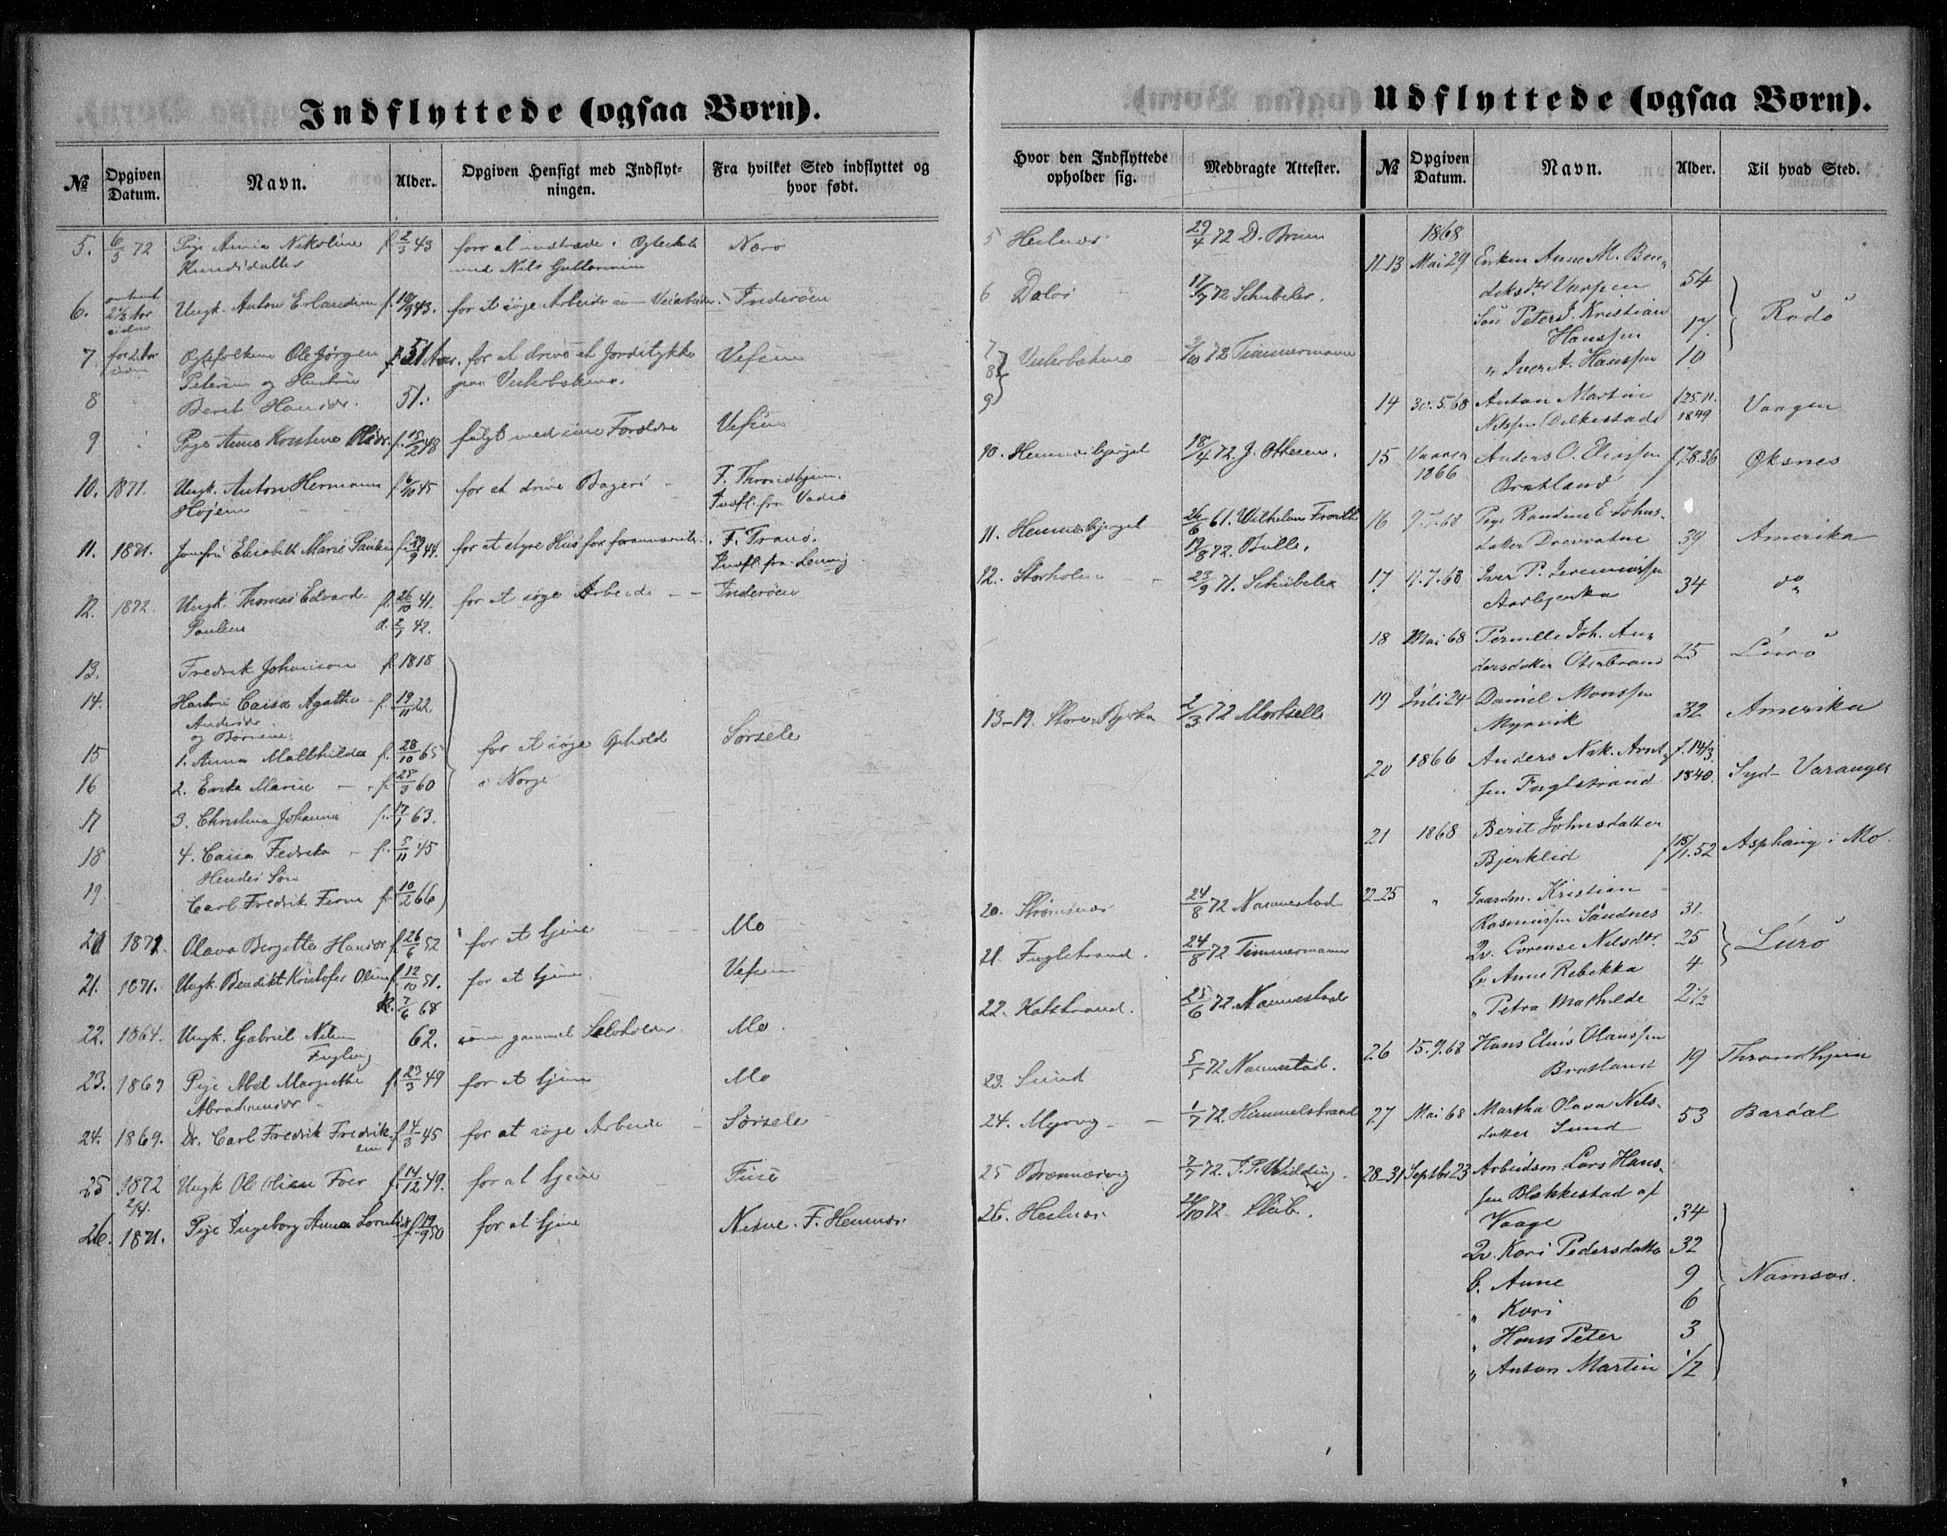 Indflyttede (ogsaa Børn).
№ Opgiven Datum. Navn. Alder. Opgiven Hensigt med Indflytningen. Fra hvilket Sted indflyttet og hvor født.
5. 6/5 72 Pige Anna Nikoline f. 2/3 43 for at indtræde i Ægteskab Nærø
Knudsdatter med Nils Guttormsen
6. Ungk. Anton Erlandsen f. 10/9 43. for at søge Arbeide Inderøen
7 for 2 Aar siden Ægtefolkene Ole Jørgen f. 51 Aar. for at drive et Jordstykke Vefsen
Petersen og Hustru paa
8 Berit Hansdr. 51.
9 Pige Anne Kirstine Olsdr. f. 15/2 48 fulgt med sine Forældre Vefsen
10. 1871. Ungk. Anton Hermann f. 6/10 45 for at drive Bageri F. Throndhjem.
Højem Indfl. fra Vadsø
11. 1871. Jomfru Elisabeth Marie f. 29/9 44. for at styre Hus for F. Tranø.
Indfl. fra
12. 1872. Ungk. Thomas Edvard f. 26/10 41. for at søge Arbeide Inderøen
Paulsen d. 2/7 42.
13. Fredrik Johanson f. 1818
14. Hustru Caisa Agatha f. 19/11 22.
Andersdr.
og Børnene:
15 1. Anna Mathilda f. 28/10 65 for at søge Ophold Sorsele
16 2. Erika Marie f. 25/3 60 i Norge
17 3. Christina Johanna f. 17/1 63.
18 4. Caisa Fedrika f. 5/11 45
Hendes Søn
19 Carl Fredrik f. 10/2 66
20 1871. Olava Bergitte Hansdr. f. 26/6 52 for at tjene Mo
21. 1871. Ungk. Benedikt Kristofer Olsen f. 12/10 51. for at tjene Vefsen
k. 7/6 68
22. 1864. Ungk. Gabriel Nilsen 62. som gammel Selvholder Mo.
23. 1867 Pige Abel Margrethe f. 23/3 49 for at tjene Mo
Abrahamsdr.
24. 1869. Dr. Carl Fredrik Fredriksen f. 4/3 45 for at søge Arbeide Sorsele
25 1872 Ungk. Ole Olsen f. 14/12 49. for at tjene
2/4.
26. 1871. Pige Ingeborg Anna f. 19/9 50 for at tjene Nesne. F. Hemnæs
Udflyttede (ogsaa Børn).
Hvor den Indflyttede opholder sig. Medbragte Attester. № Opgiven Datum. Navn. Alder. Til hvad Sted.
5 29/4 72 D. Bruun
6 Dalos 17/7 72 Schübeler.
7 8 9 72 Timmermann
10. Hemnesbjerget 18/4 72. J. Ottesen.
11. Hemnesbjerget 26/6 61. Wilhelm
19/8 72. Bulle.
12. Storholmen 23/9 71. Schübeler
13-19. Store Bjerka 2/3 72
20. Strømsnes 24/8 72 Nannestad
21. Fuglestrand. 24/8 72 Timmermann
22. Kobstrand. 25/6 72 Nannestad
23. Sund 5/5 72 Nannestad.
24. Myrvg 1/7 72. Himmelstrand
25 7/7 72. J. P. Widding.
26. 72.
1868
11-13 Mai 29 Enken Anne M. Ben-
diksdtr Varpen 54
Søn Peter J. Kristian Rødø
Hanssen 17.
„ Iver A. Hanssen 10
14 30.5.68 Anton Martin f 25.11. Vaagen
Nilssen 1849
15 1866 Anders O. Eliassen f. 7.8.36 Øksnes
Bratland
16 9.7.68 Pige Randine E. Johns-
datter 39 Amerika
17 9.7.68 Iver P. Jeremiassen 34 do
18 Mai 68 Pernille Joh. An-
dersdatter Oterbrand 25 Lurø
19 Juli 24 Daniel Monssen 32 Amerika
Myrvik
20 1866 Anders Nik. Arnt- f. 14/3
sen Fuglstrand 1840. Syd-Varanger
21 1868 Berit Johnsdatter
Bjerklid f 15/1.52 Asphaug i Mo.
22-25 „ Gaardm. Kristian
Rasmussen Sandnes 31.
Qv. Lorense Nilsdtr. 25 Lurø
B Anne Rebekka 4
„ Petra Mathilde 2½
26 15.9.68 Hans Elias Olaussen
Bratland 19 Throndhjem
27 Mai 68 Martha Olava Nils-
datter Sund 53 Bardal
28-31 Septbr 23 Arbeidsm Lars Hans-
sen Blakkestad af
Vaage 34
Qv. Kari Pedersdatter 32
B. Anne 9 Namsos.
„ Kari 6
„ Hans Peter 3
„ Anton Martin ½